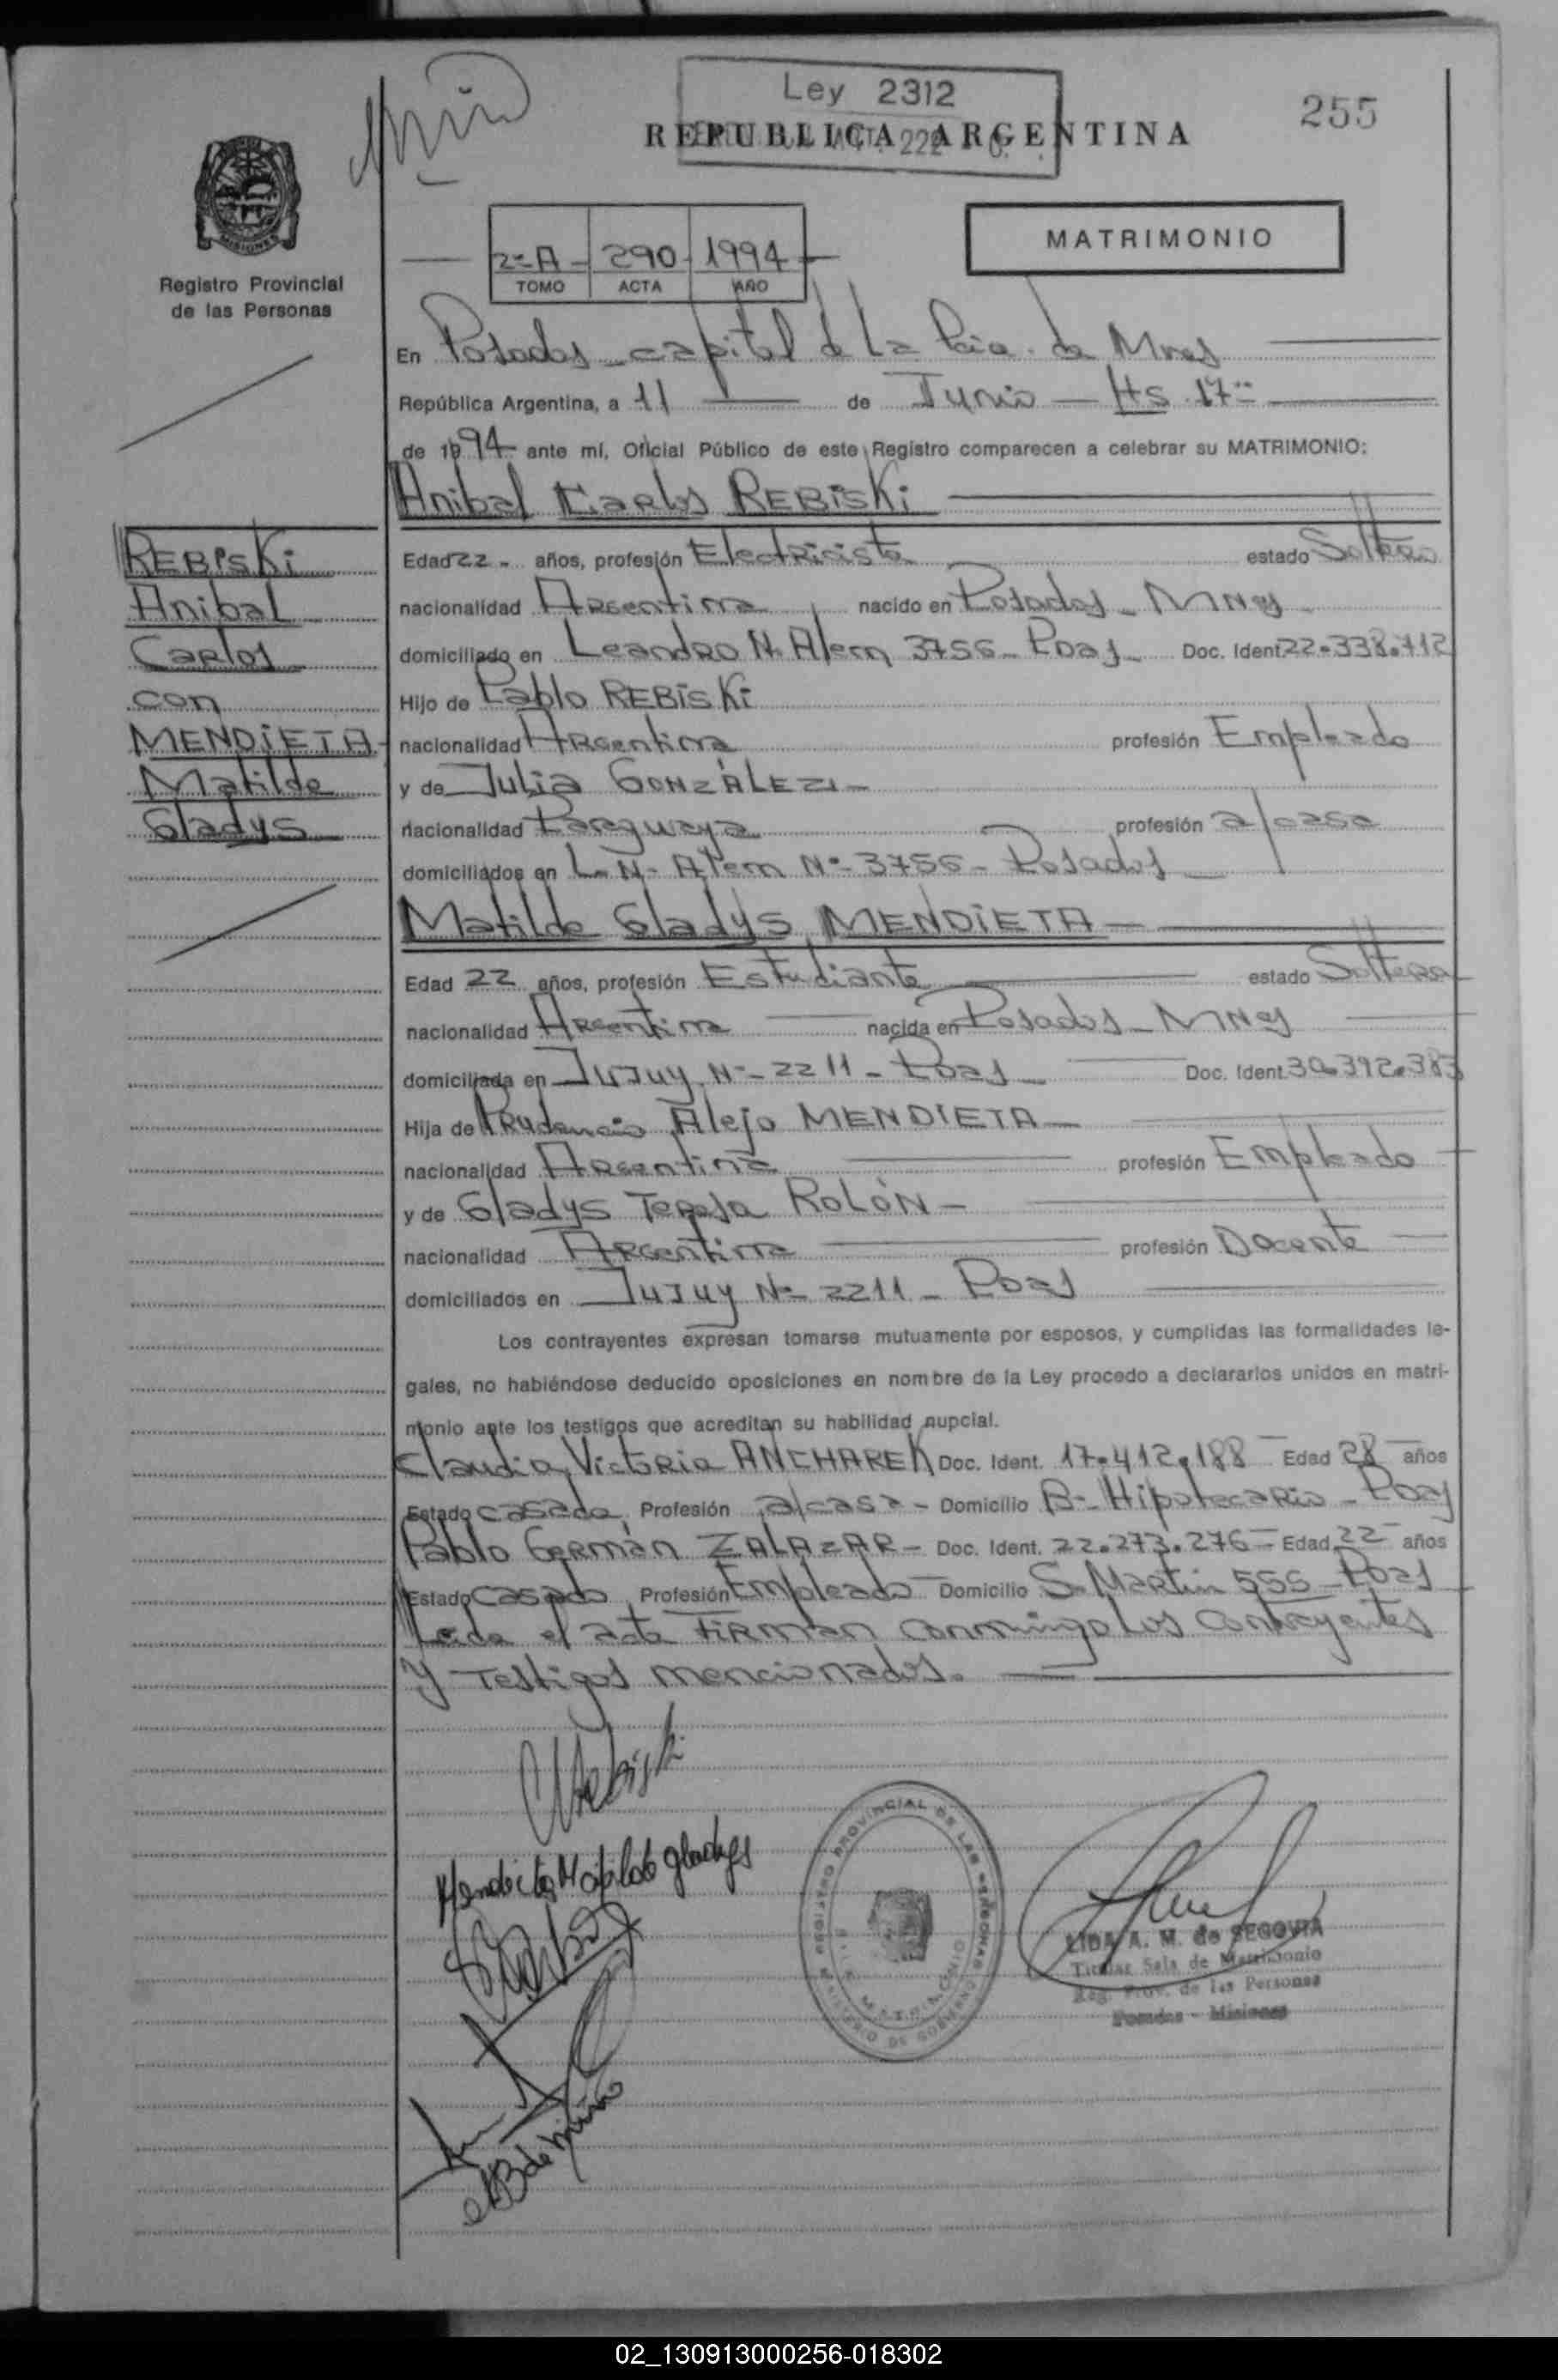 Ley 2312
255
REPUBLICA ARGENTINA
Registro Provincial
de las Personas
MATRIMONIO
2º A - 290 - 1994 -
TOMO ACTA AÑO
En Posadas capital de La Pcia. de Mnes
República Argentina, a 11 de Junio - Hs. 17
de 1994 ante mí, Oficial Público de este Registro comparecen a celebrar su MATRIMONIO:
Anibal Carlos REBISKi
REBISKi
Anibal
Carlos
con
MENDiETA
Matilde
Gladys
Edad 22 - años, profesión Electricista estado Soltero
nacionalidad Argentina nacido en Posadas - MNes
domiciliado en Leandro N. Alem 3756 - Pdas - Doc. Ident. 22.338.712
Hijo de Pablo REBISKi
nacionalidad Argentina profesión Empleado
y de Julia GONZÁLEZ -
nacionalidad Paraguaya profesión a/casa
domiciliados en L. N. Alem Nº 3756 - Posadas
Matilde Gladys MENDiETA -
Edad 22 años, profesión Estudiante estado Soltera
nacionalidad Argentina nacida en Posados - MNes
domiciliada en JuJuy Nº 2211 - Pdas - Doc. Ident. 30.392.383
Hija de Prudencio Alejo MENDIETA -
nacionalidad Argentina profesión Empleado
y de Gladys Teresa ROLÓN -
nacionalidad Argentina profesión Docente
domiciliados en JuJuy Nº 2211 - Pdas
Los contrayentes expresan tomarse mutuamente por esposos, y cumplidas las formalidades le-
gales, no habiéndose deducido oposiciones en nombre de la Ley procedo a declararlos unidos en matri-
monio ante los testigos que acreditan su habilidad nupcial.
Claudia Victoria ANCHAREK Doc. Ident. 17.412.188 - Edad 28 años
Estado casada Profesión a/casa - Domicilio Bº Hipotecario - Pdas
Pablo Germán ZALAZAR - Doc. Ident. 22.273.276 - Edad 22 años
Estado Casado Profesión Empleado - Domicilio S. Martin 555 - Pdas
Leída el acta FiRman conmingo Los contrayentes
y Testigos mencionados.
Mendieta Matilde gladys
REGISTRO PROVINCIAL DE LAS PERSONAS
MINISTERIO DE GOBIERNO
MATRIMONIO
LIDA A. M. de SEGOVIA
Titular Sala de Matrimonio
Reg. Prov. de las Personas
Posadas - Misiones
02_130913000256-018302